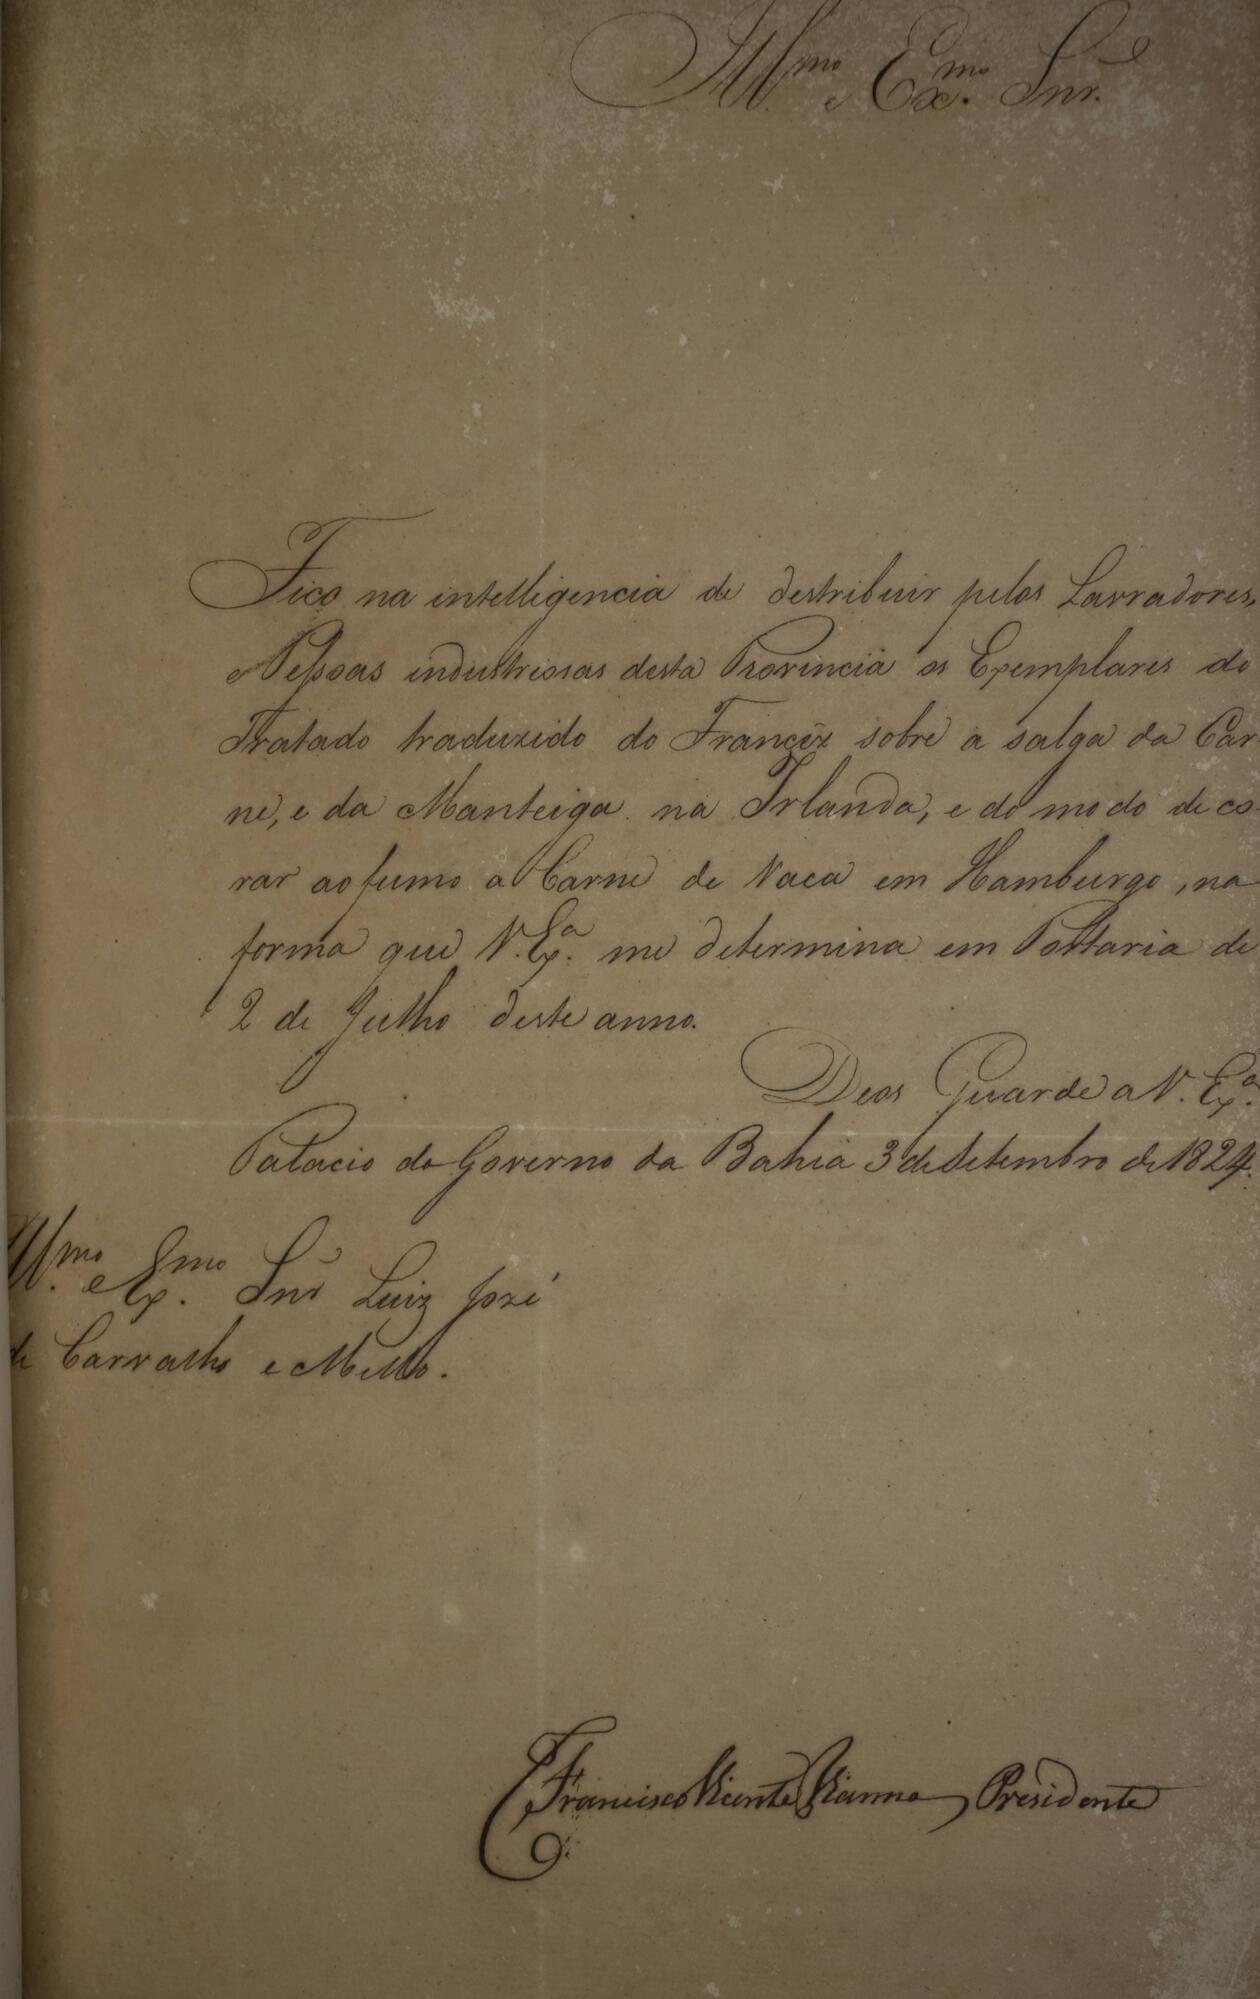 Ill.mo e Ex.mo Snr.
Fico na intelligencia de destribuir pelos Lavradores,
e Pessoas industriosas desta Provincia os Exemplares do
Tratado traduzido do Francêz sobre a salga da Car-
ne, e da Manteiga na Irlanda, e do modo de co-
rar ao fumo a Carne de Vaca em Hamburgo, na
forma que V. Ex.a me determina em Portaria de
2 de Julho deste anno.
Deos Guarde a V. Ex.a
Palacio do Governo da Bahia 3 de Setembro de 1824.
Ill.mo e Ex.mo Snr Luiz José
de Carvalho e Mello.
Francisco Vicente Vianna, Presidente